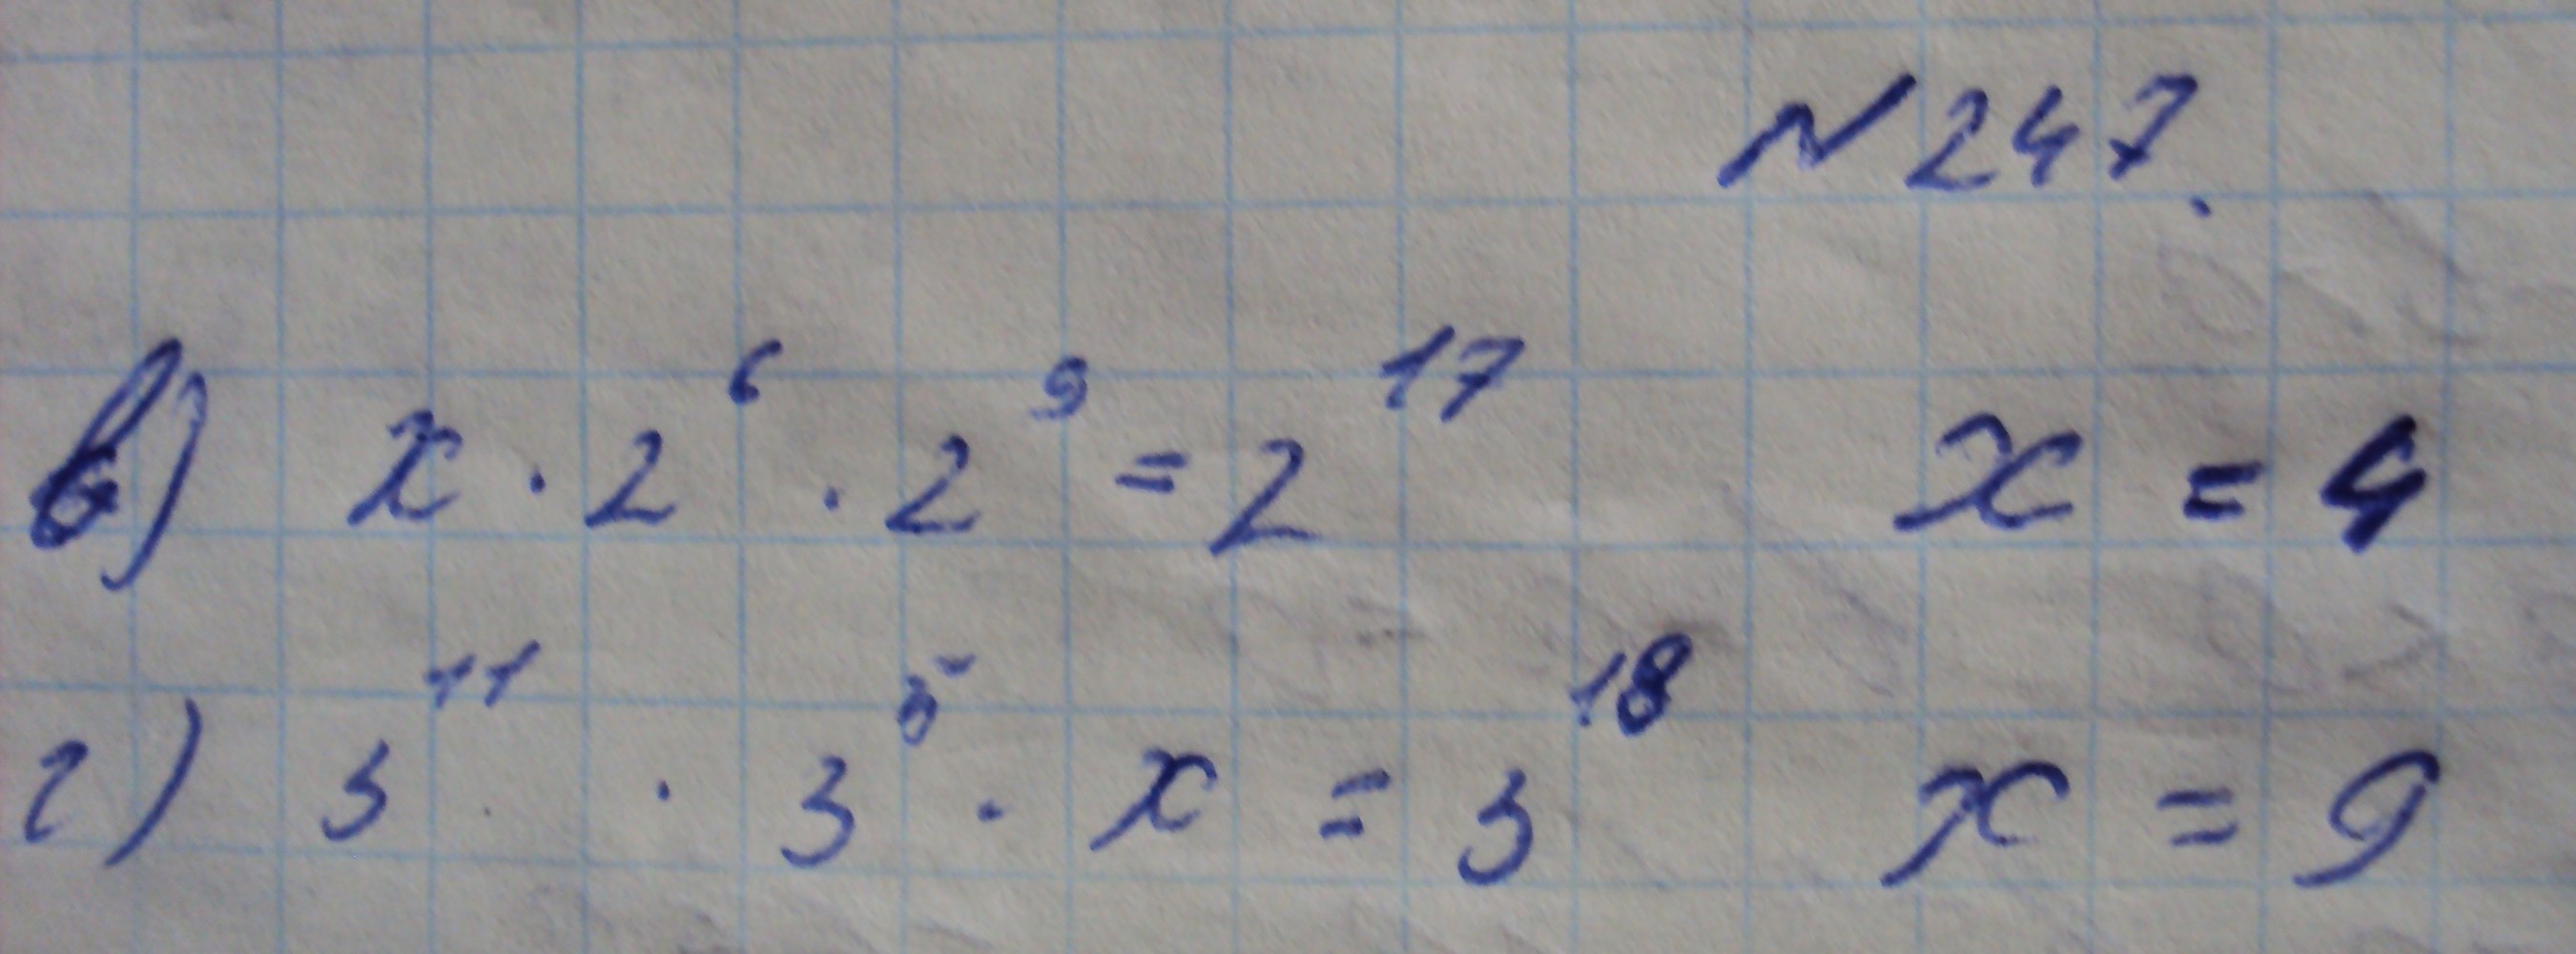 №247.
в) x · 2⁶ · 2⁹ = 2¹⁷ x = 4
г) 3¹¹ · 3⁵ · x = 3¹⁸ x = 9